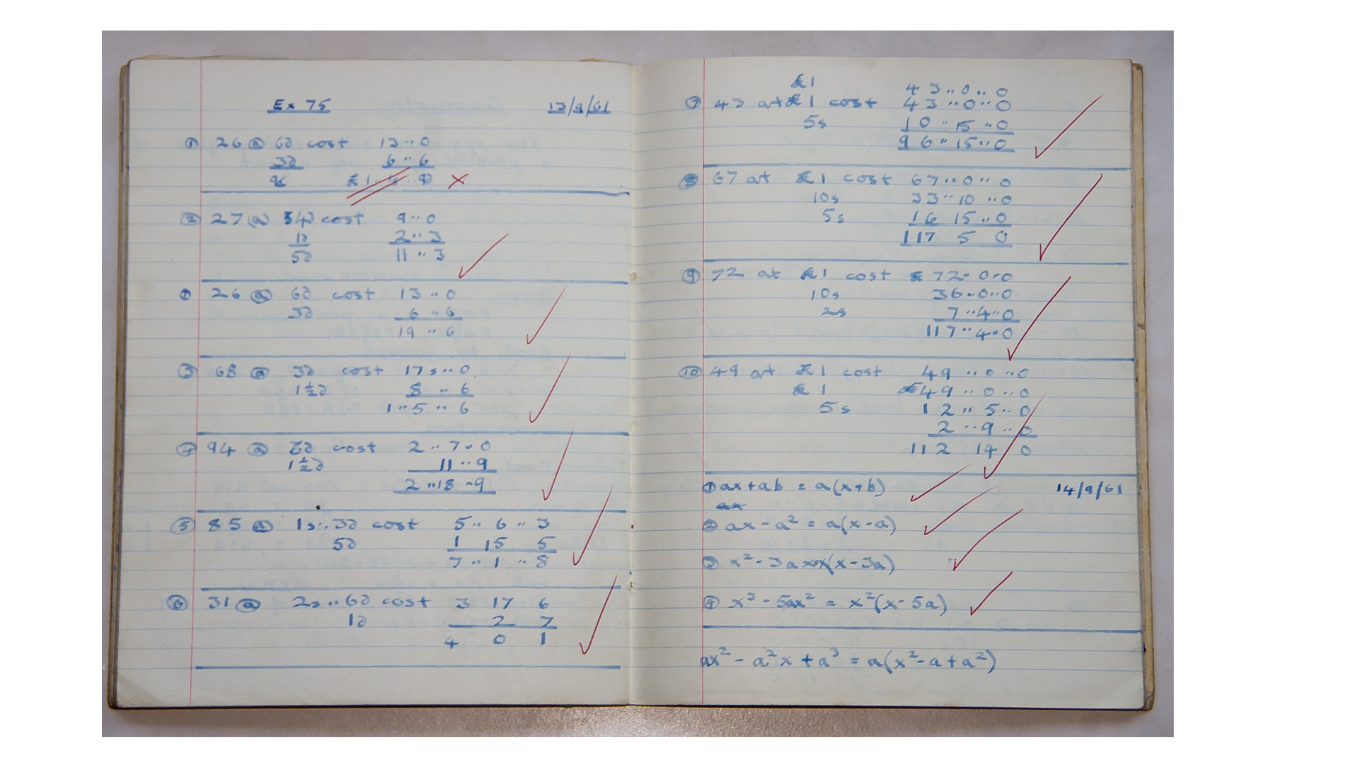 Ex 75 13/9/61
① 26 @ 6d cost 13..0
3d 6..6
9d £1..
② 27 @ 4d cost 9..0
1d 2..3
5d 11..3
① 26 @ 6d cost 13..0
3d 6..6
19..6
③ 68 @ 3d cost 17s..0
1½d 8..6
1..5..6
④ 94 @ 6d cost 2..7..0
1½d 11..9
2..18..9
⑤ 85 @ 1s..3d cost 5..6..3
5d 1 15 5
7..1..8
⑥ 31 @ 2s..6d cost 3 17 6
1d 2 7
4 0 1
£1 43..0..0
⑦ 43 at £1 cost 43..0..0
5s 10..15..0
96..15..0
⑧ 67 at £1 cost 67..0..0
10s 33..10..0
5s 16 15..0
117 5 0
⑨ 72 at £1 cost £72-0-0
10s 36-0..0
2s 7..4..0
117..4..0
⑩ 49 at £1 cost 49..0..0
£1 £49..0..0
5s 12..5..0
2..9..0
112 14 0
① ax+ab = a(x+b) 14/9/61
ax
② ax-a² = a(x-a)
③ x²-3ax=x(x-3a)
④ x³-5ax² = x²(x-5a)
ax²-a²x+a³ = a(x²-a+a²)